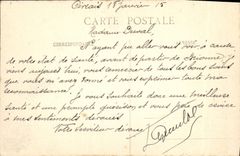 15 Janvier 15
CARTE POSTALE
Madame Duval
N'ayant pu aller vous voir à cause
de votre état de santé, avant de partir de
je viens aujourd'hui, vous remercier de tous les bons soins
que vous m'avez donné et vous exprimer toute ma
reconnaissance. Je vous souhaite donc une meilleure
santé et une prompte guérison, et vous prie de croire
à mes sentiments dévoués
Votre serviteur dévoué